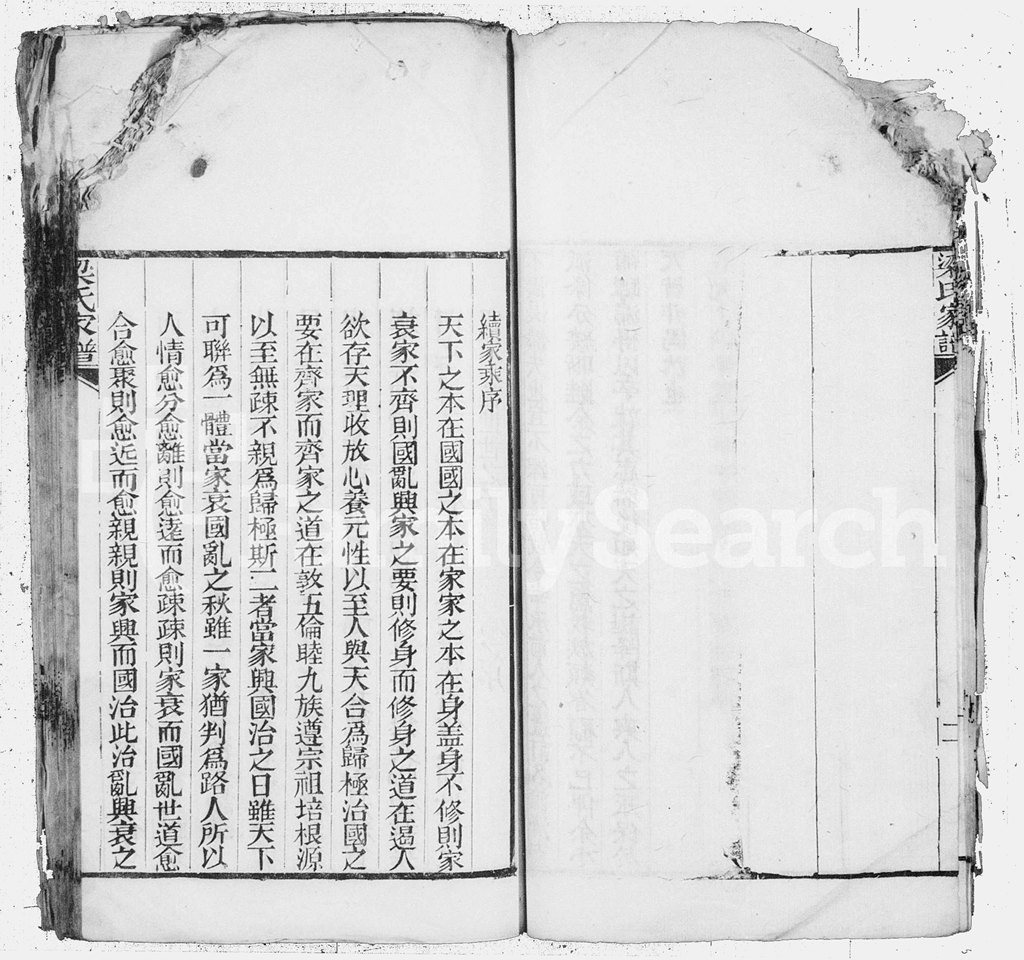 梁氏家譜
二
續家乘序
天下之本在國國之本在家家之本在身盖身不修則家
衰家不齊則國亂興家之要則修身而修身之道在遏人
欲存天理收放心養元性以至人與天合爲歸極治國之
要在齊家而齊家之道在敦五倫睦九族遵宗祖培根源
以至無疎不親爲歸極斯二者當家興國治之日雖天下
可聯爲一體當家衰國亂之秋雖一家猶判爲路人所以
人情愈分愈離則愈逺而愈疎疎則家衰而國亂世道愈
合愈聚則愈近而愈親親則家興而國治此治亂興衰之
梁氏家譜
FamilySearch